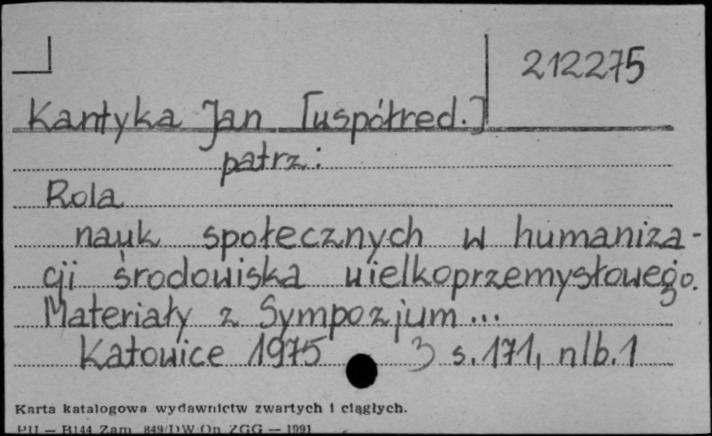 212275
Kantyka Jan [współred.]
patrz:
Rola
nauk społecznych w humaniza-
cji środowiska wielkoprzemysłowego.
Materiały z Sympozjum...
Katowice 1975 3 s. 171, nlb. 1
Karta katalogowa wydawnictw zwartych i ciągłych.
PU — B144 Zam. 849/DW/On ZGG — 1991